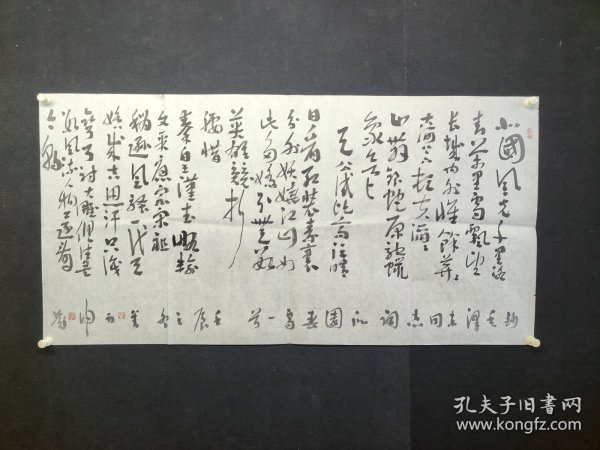 北國風光千里冰
封萬里雪飄望
长城内外惟餘莽莽
大河上下頓失滔滔
山舞銀蛇原馳蠟
象欲与
天公試比高須晴
日看红裝素裹
分外妖嬈江山如
此多嬌引無數
英雄競折
腰惜
秦皇漢武略輸
文采唐宗宋祖
稍遜風騷一代天
嬌成吉思汗只識
彎弓射大雕俱往矣
數風流人物還看
今朝
錄毛澤東同志詞沁園春雪一首壬辰之冬
孔夫子旧书网
www.kongfz.com